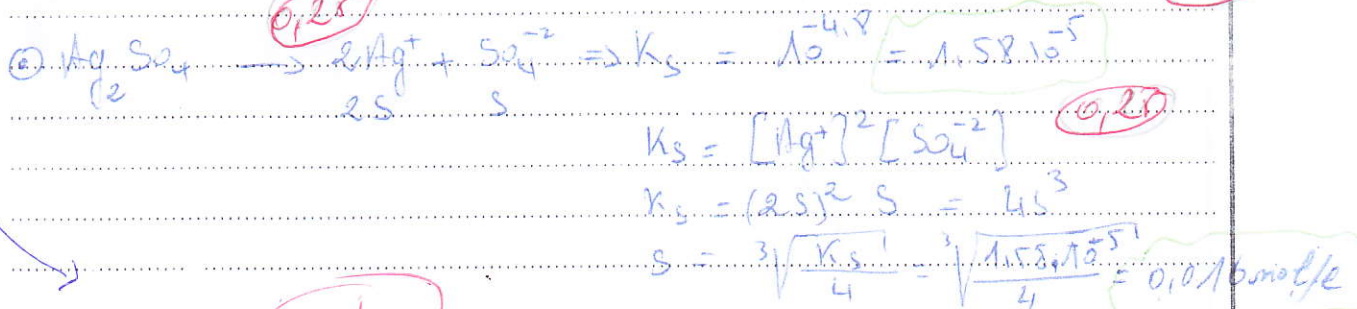 0,25
a) Ag2SO4 ⟶ 2Ag⁺ + SO4⁻² ⇒ Ks = 10^-4,8 = 1,58 10^-5
2S S
Ks = [Ag⁺]² [SO4⁻²] 0,25
Ks = (2S)² S = 4S³
S = ³√(Ks/4) = ³√(1,58.10^-5/4) = 0,016 mol/l